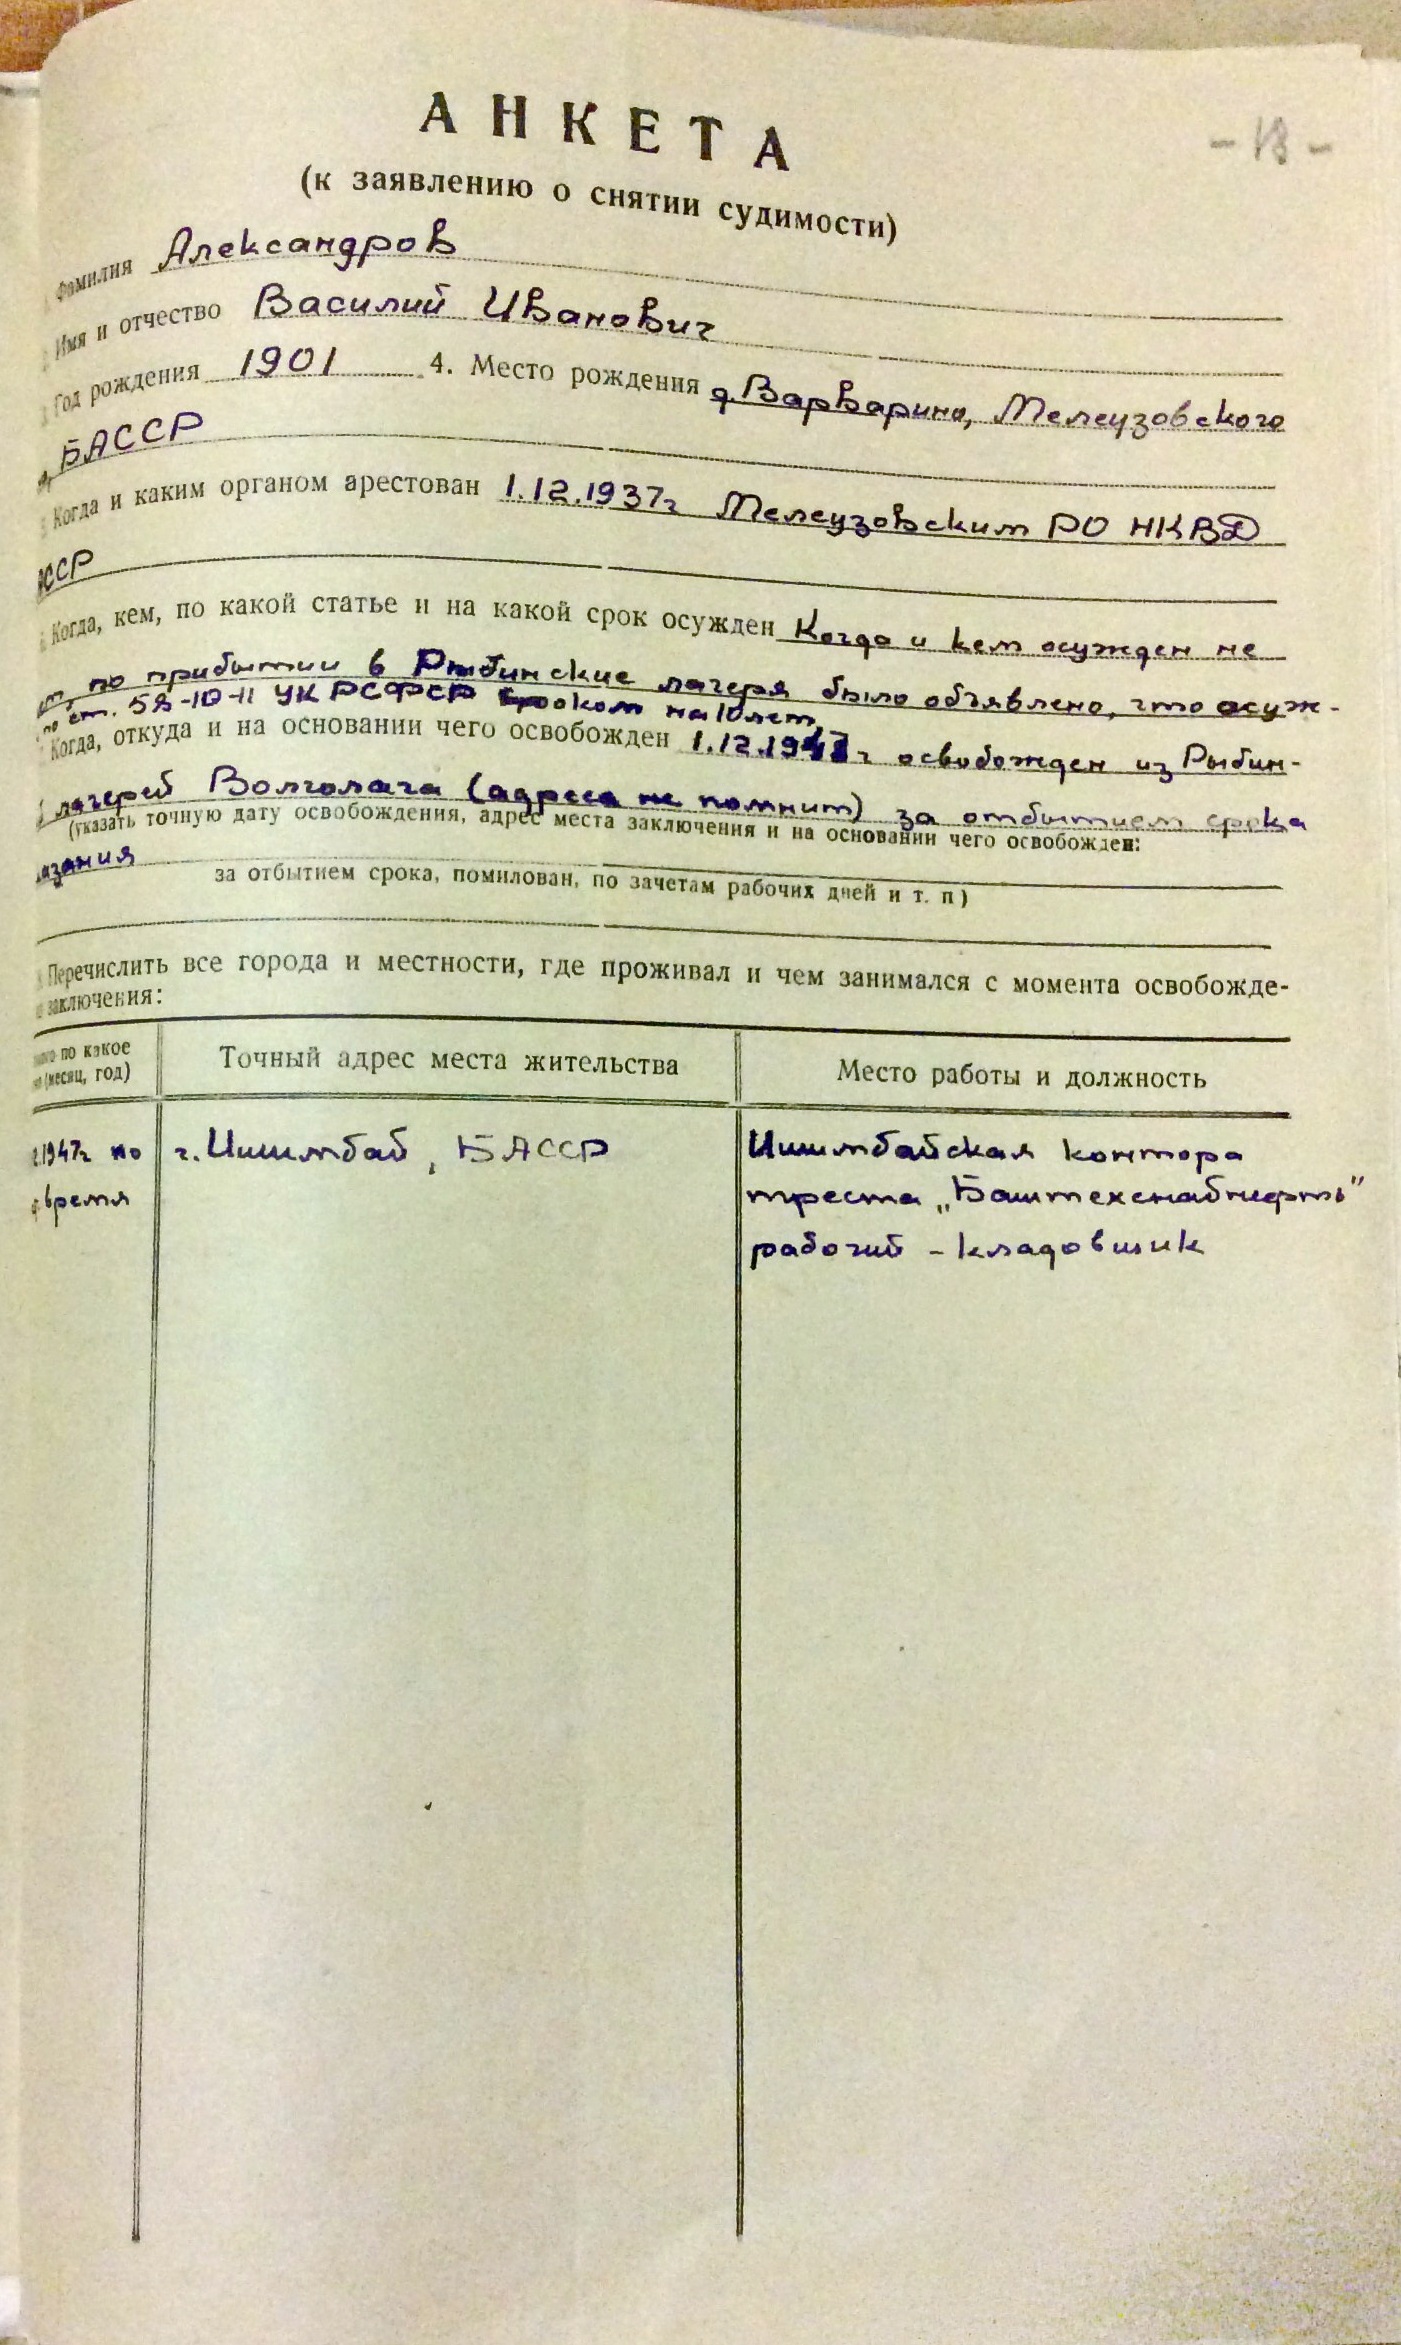 АНКЕТА
- 18 -
(к заявлению о снятии судимости)
Фамилия Александров
Имя и отчество Василий Иванович
Год рождения 1901 4. Место рождения д. Варварино, Мелеузовского
БАССР
Когда и каким органом арестован 1.12.1937г Мелеузовским РО НКВД
АССР
Когда, кем, по какой статье и на какой срок осужден Когда и кем осужден не
по прибытии в Рыбинские лагеря было объявлено, что осуж-
по ст. 58-10-11 УК РСФСР сроком на 10 лет
Когда, откуда и на основании чего освобожден 1.12.1947г освобожден из Рыбин-
лагерей Волголага (адреса не помнит) за отбытием срока
(указать точную дату освобождения, адрес места заключения и на основании чего освобожден:
азания
за отбытием срока, помилован, по зачетам рабочих дней и т. п)
Перечислить все города и местности, где проживал и чем занимался с момента освобожде-
заключения:
по какое
(месяц, год)
Точный адрес места жительства
Место работы и должность
1947г по
время
г. Ишимбай, БАССР
Ишимбайская контора
треста „Баштехснабнефть"
рабочий - кладовщик